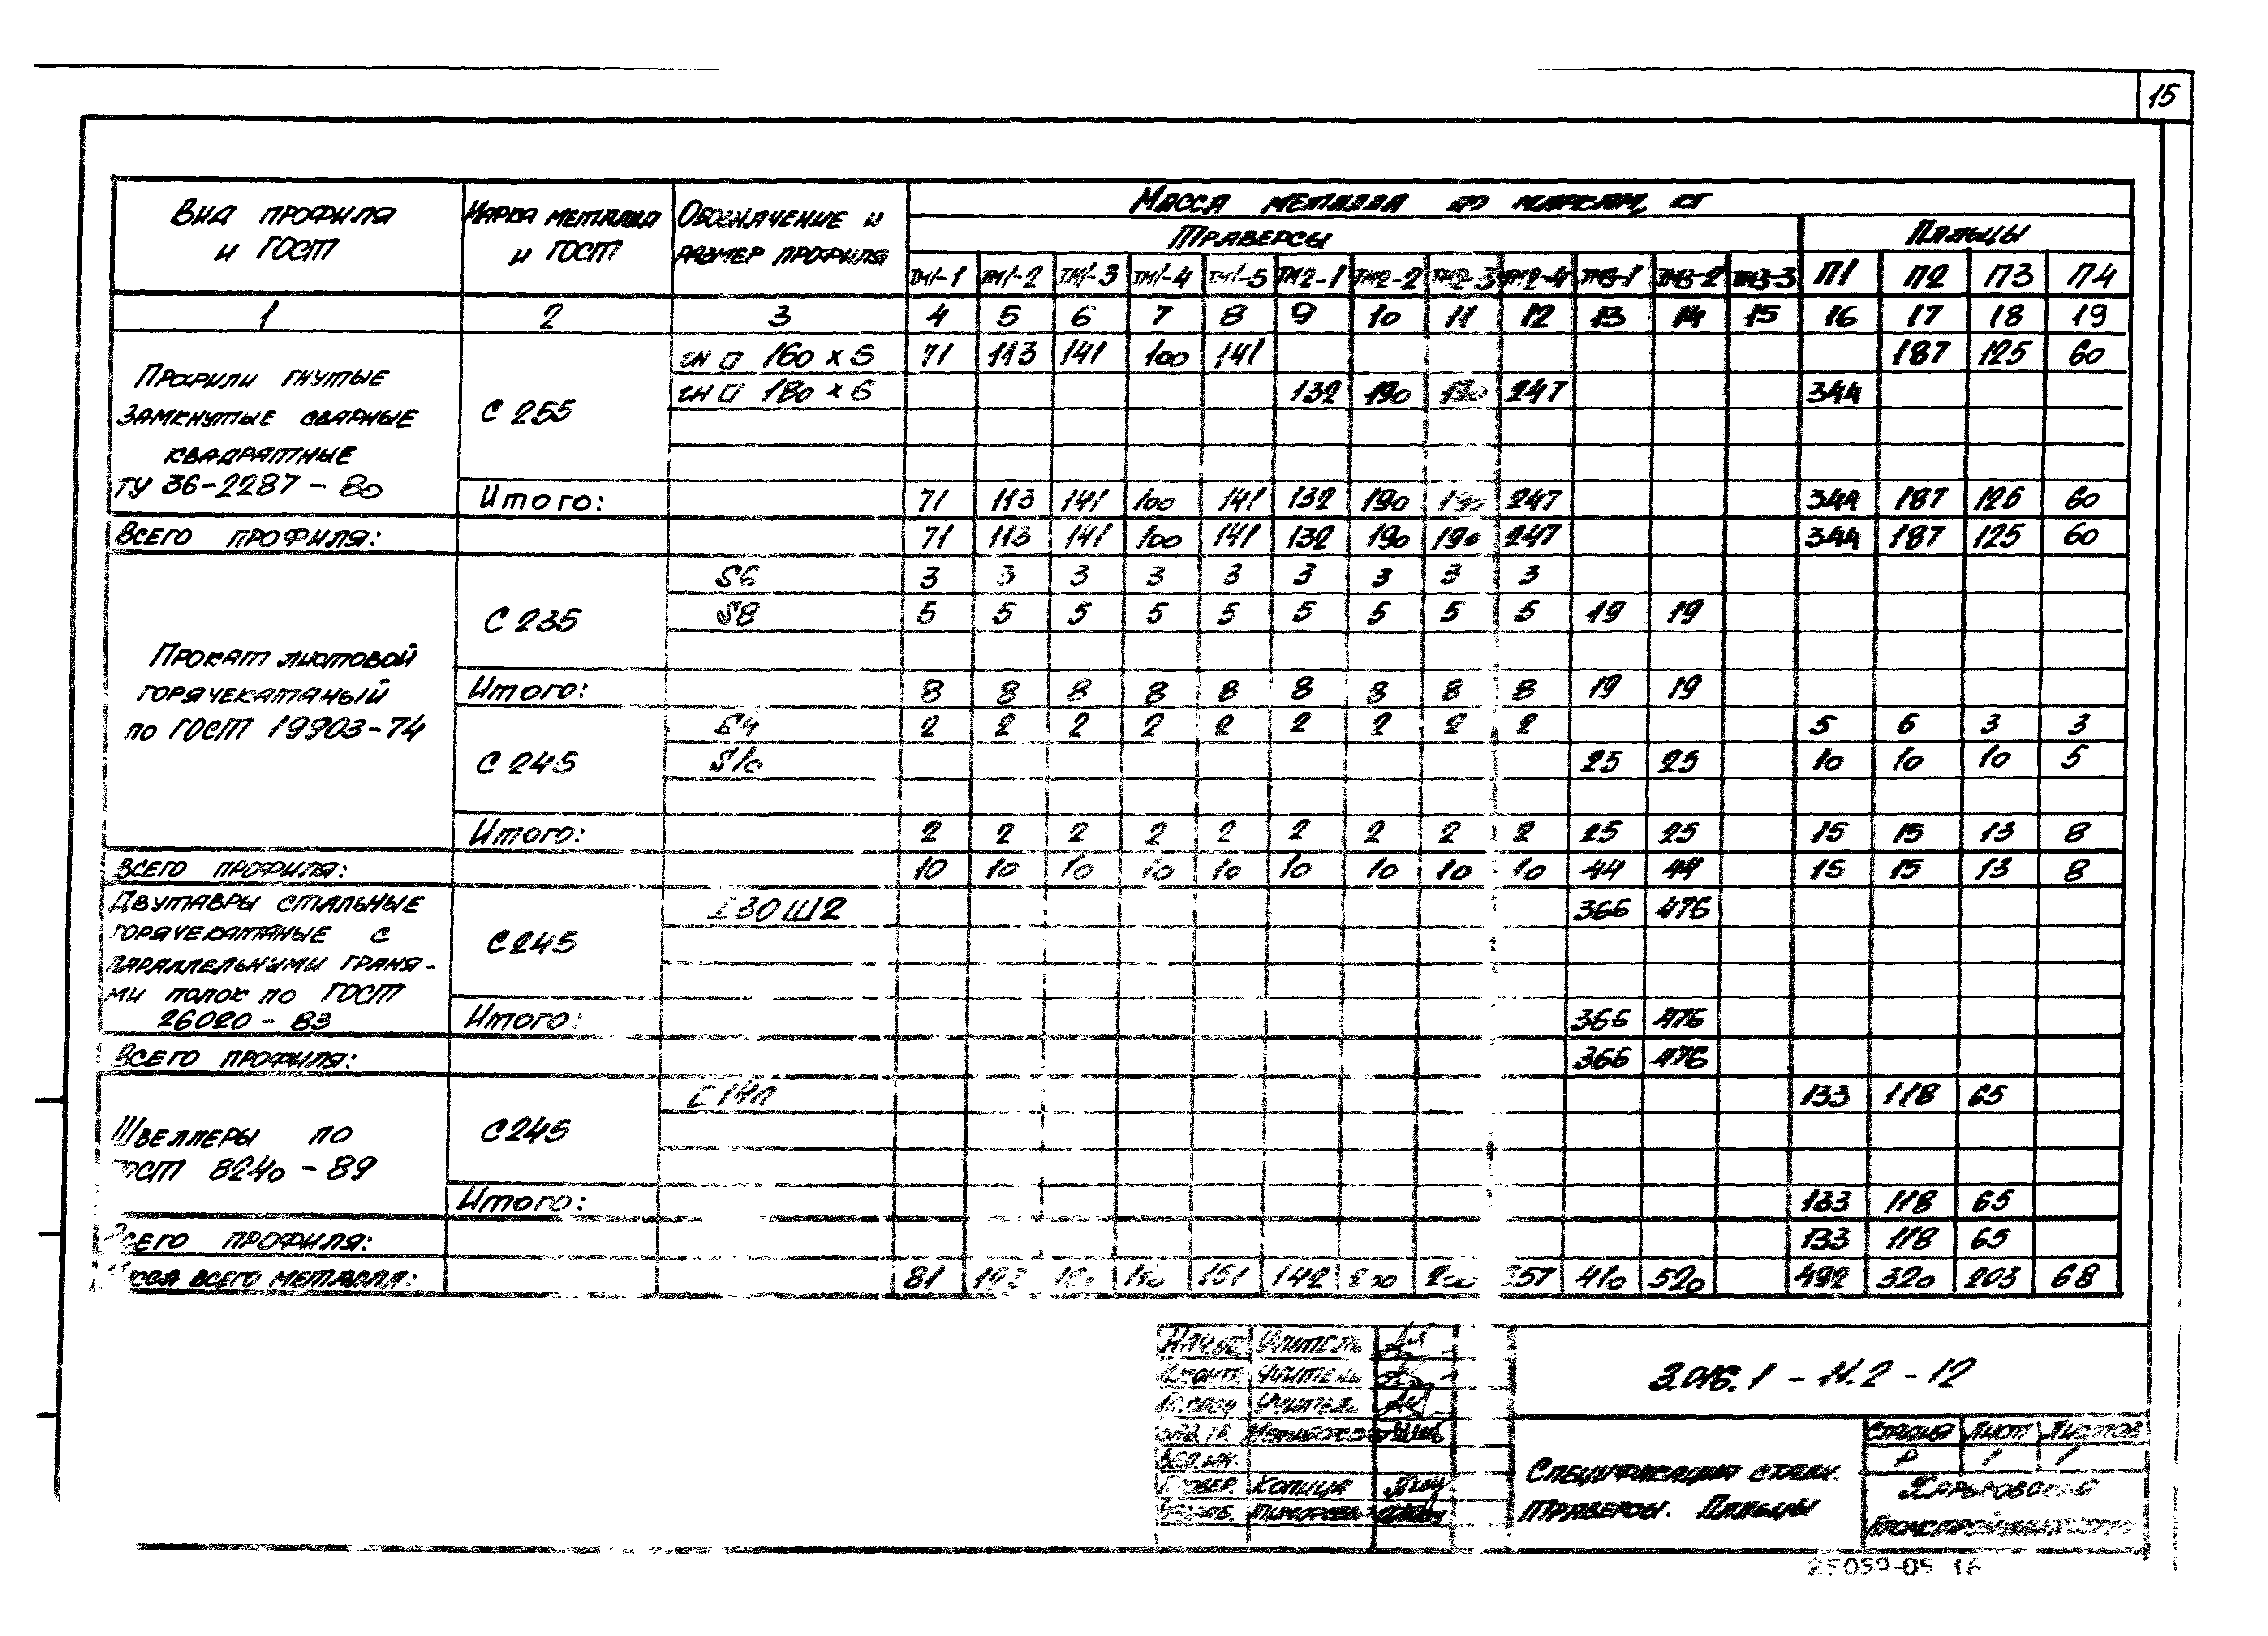 15
Вид профиля и ГОСТ | Марка металла и ГОСТ | Обозначение и размер профиля | Масса металла по маркам, кг
Траверсы | Пальцы
ТМ1-1 | ТМ1-2 | ТМ1-3 | ТМ1-4 | ТМ1-5 | ТМ2-1 | ТМ2-2 | ТМ2-3 | ТМ2-4 | ТМ3-1 | ТМ3-2 | ТМ3-3 | П1 | П2 | П3 | П4
1 | 2 | 3 | 4 | 5 | 6 | 7 | 8 | 9 | 10 | 11 | 12 | 13 | 14 | 15 | 16 | 17 | 18 | 19
Профили гнутые замкнутые сварные квадратные ТУ 36-2287-80
С 255
гн □ 160 х 5 | 71 | 113 | 141 | 100 | 141 | 187 | 125 | 60
гн □ 180 х 6 | 132 | 190 | 190 | 247 | 344
Итого: | 71 | 113 | 141 | 100 | 141 | 132 | 190 | 190 | 247 | 344 | 187 | 126 | 60
Всего профиля: | 71 | 113 | 141 | 100 | 141 | 132 | 190 | 190 | 247 | 344 | 187 | 125 | 60
Прокат листовой горячекатаный по ГОСТ 19903-74
С 235
S6 | 3 | 3 | 3 | 3 | 3 | 3 | 3 | 3 | 3
S8 | 5 | 5 | 5 | 5 | 5 | 5 | 5 | 5 | 5 | 19 | 19
Итого: | 8 | 8 | 8 | 8 | 8 | 8 | 8 | 8 | 8 | 19 | 19
С 245
S4 | 2 | 2 | 2 | 2 | 2 | 2 | 2 | 2 | 2 | 5 | 6 | 3 | 3
S10 | 25 | 25 | 10 | 10 | 10 | 5
Итого: | 2 | 2 | 2 | 2 | 2 | 2 | 2 | 2 | 2 | 25 | 25 | 15 | 15 | 13 | 8
Всего профиля: | 10 | 10 | 10 | 10 | 10 | 10 | 10 | 10 | 10 | 44 | 44 | 15 | 15 | 13 | 8
Двутавры стальные горячекатаные с параллельными граня-
ми полок по ГОСТ 26020-83
С 245
I 30 Ш2 | 366 | 476
Итого: | 366 | 476
Всего профиля: | 366 | 476
Швеллеры по ГОСТ 8240-89
С 245
[ 14П | 133 | 118 | 65
Итого: | 133 | 118 | 65
Всего профиля: | 133 | 118 | 65
Масса всего металла: | 81 | 151 | 142 | 200 | 200 | 257 | 410 | 520 | 492 | 320 | 203 | 68
Учитель
Н.контр. Учитель
Учитель
Вед.инж.
Провер. Копица
3.016.1 - 11.2 - 12
Спецификация стали.
Траверсы. Пальцы
Стадия | Лист | Листов
Р | 1 | 1
Харьковский
Промстройниипроект
25059-05 16